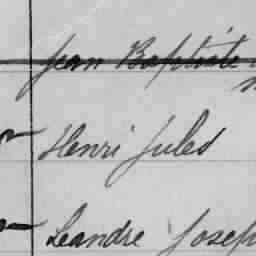 Jean Baptiste
Henri Jules
Leandre Joseph